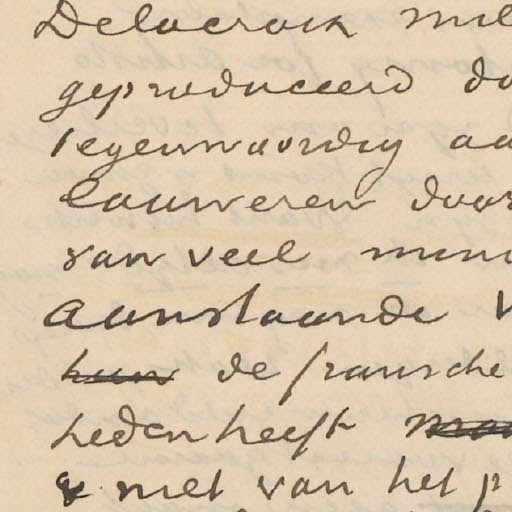 Delacroix Mil
geproduceerd do
tegenwoordig aa
lauweren door
van veel min
aanstaande V
hun de fransche
heden heeft
& met van het p